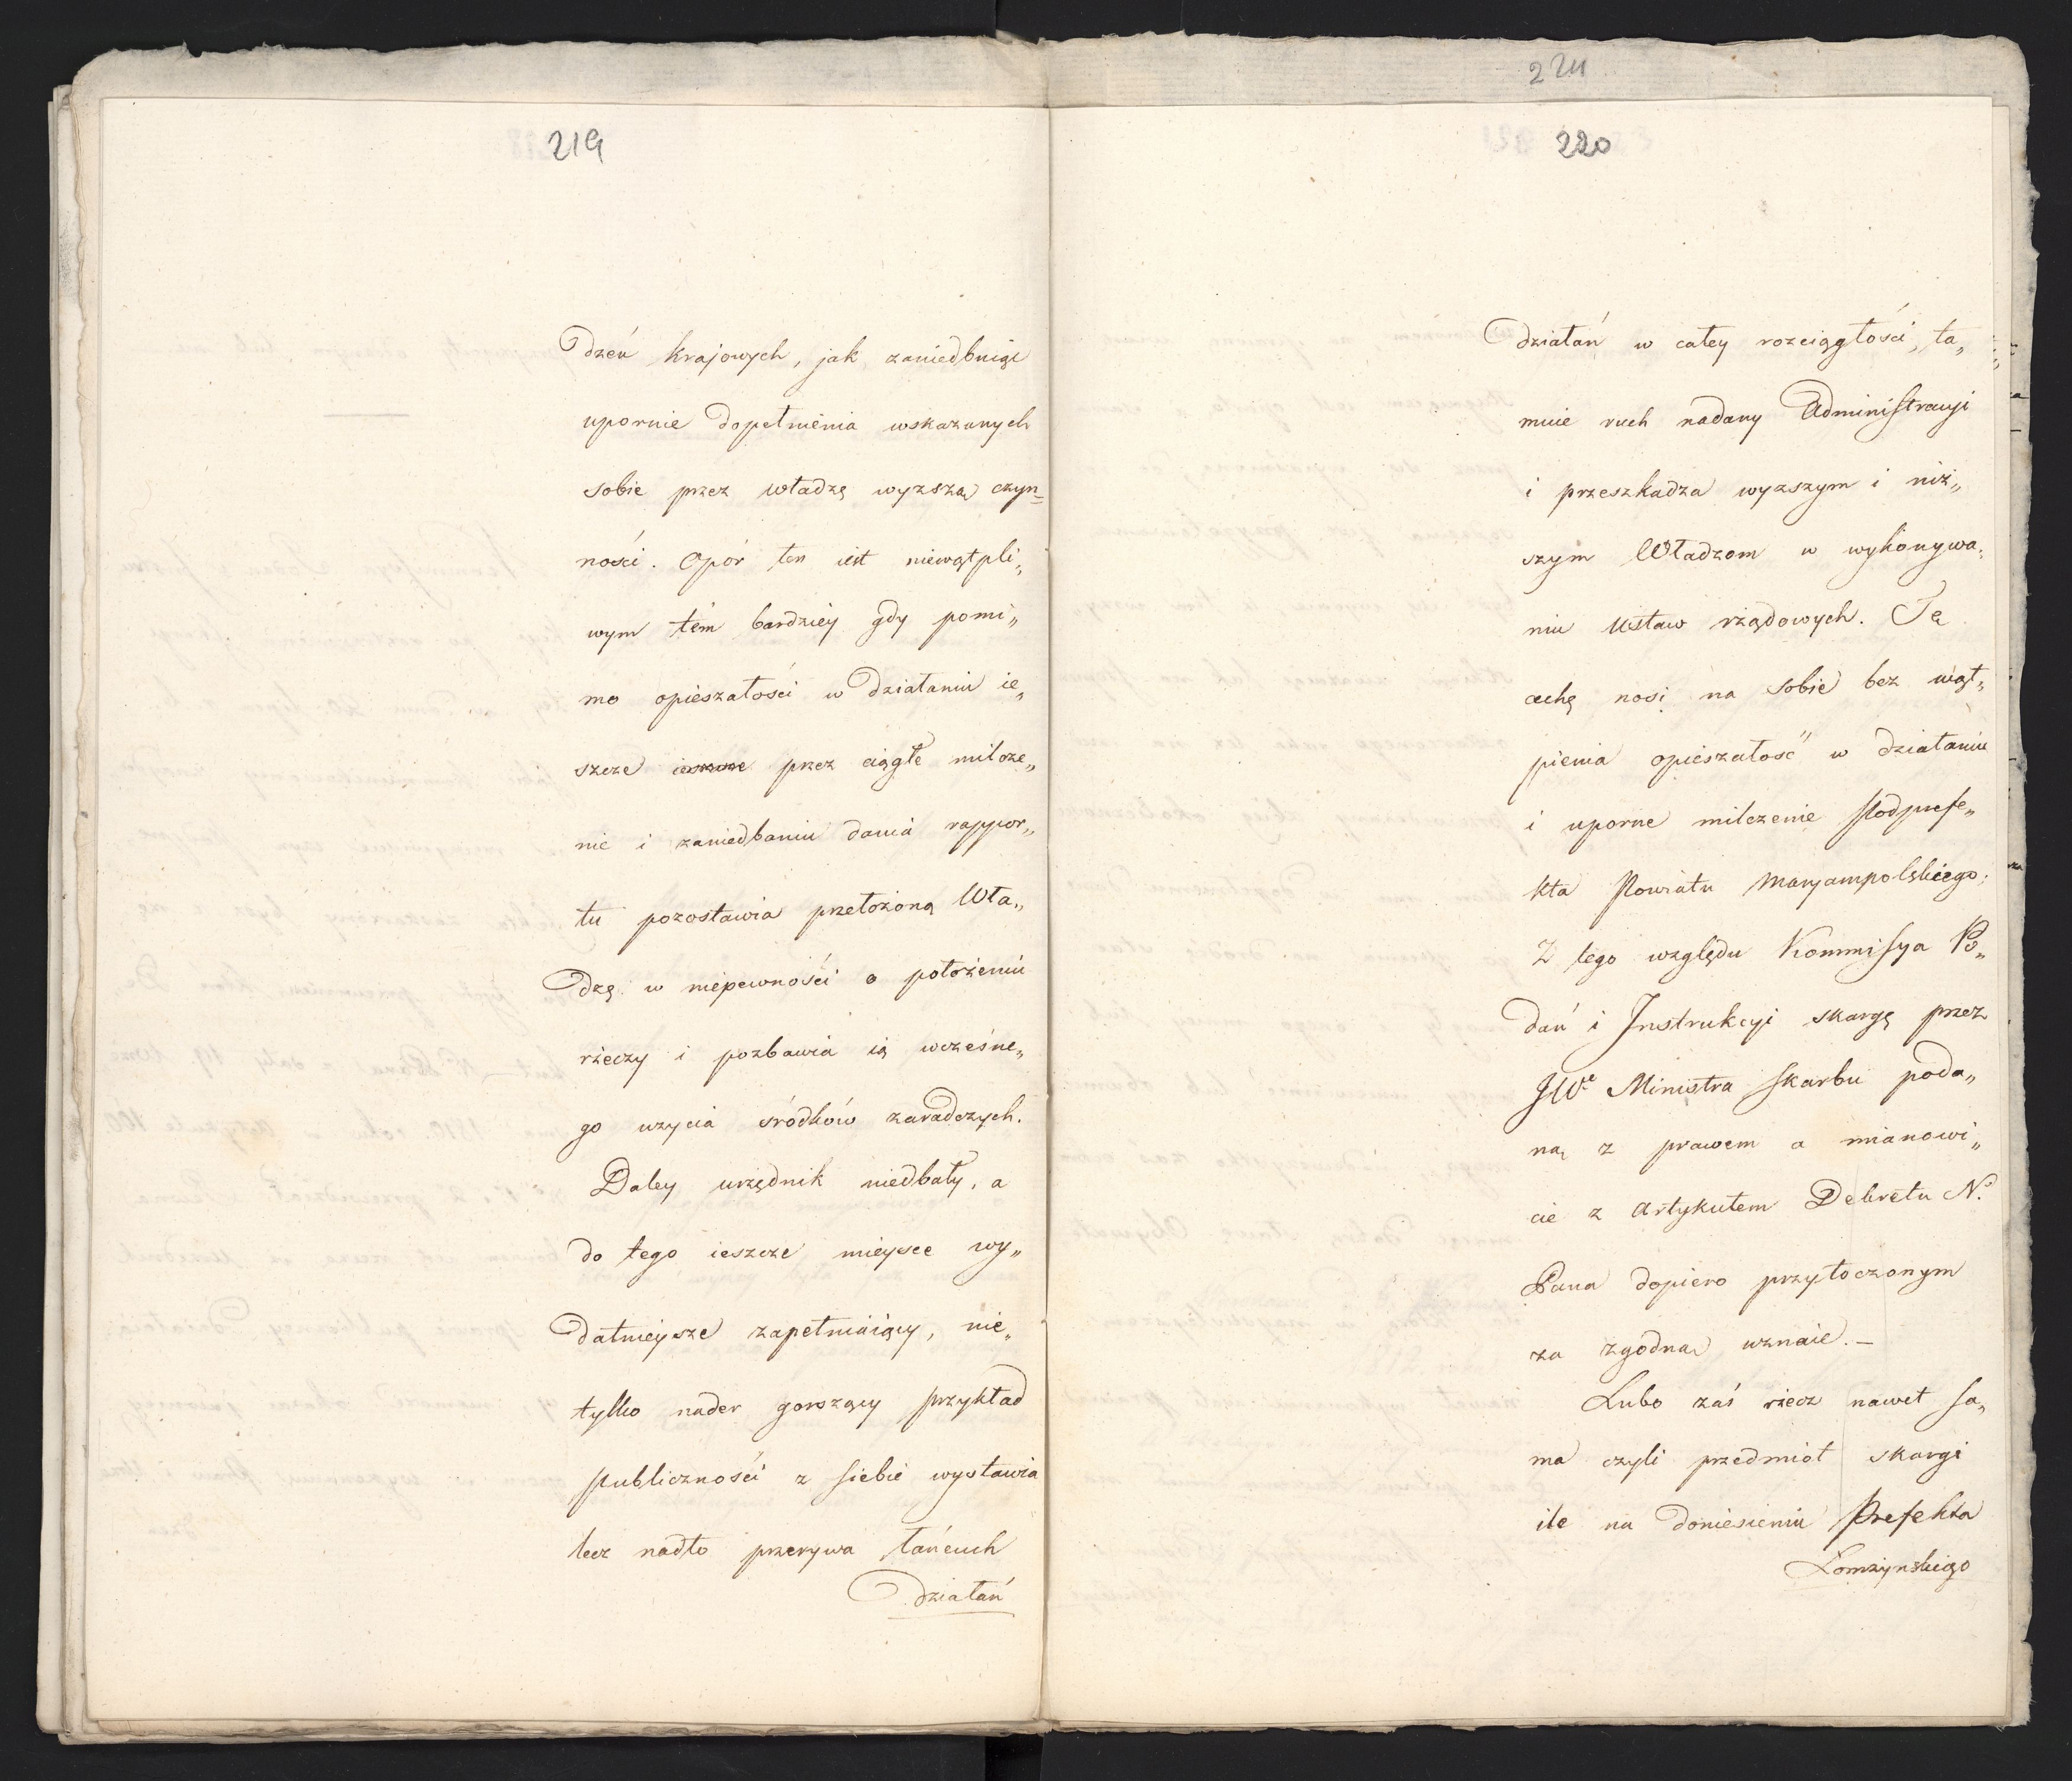 219
dzeń krajowych, jak zaniedbuiąc
upornie dopełnienia wskazanych
sobie przez władzę wyższą czyn=
ności. Opór ten iest niewątpli„
wym tém bardziéy gdy pomi„
mo opieszałości w działaniu ie„
szcze przez ciągłe milcze„
nie i zaniedbaniu dania rappor„
tu pozostawia przełożoną Wła„
dzę w niepewności o położeniu
rzeczy i pozbawia ią wcześne„
go użycia śródków zaradczych.
Daley urzędnik niedbały, a
do tego ieszcze mieysce wy„
datnieysze zapełniaiący, nie„
tylko nader gorszący przykład
publiczności z siebie wystawia
lecz nadto przerywa łańcuch
działań
221
220
działań w całey rozciągłości, ta„
muie ruch nadany Administracyi
i przeszkadza wyższym i niż„
szym Władzom w wykonywa„
niu ustaw rządowych. Tę
cechę nosi na sobie bez wąt„
pienia opieszałość w działaniu
i uporne milczenie Podprefe„
kta Powiatu Maryampolskiego;
Z tego względu Kommisya Po„
dań i Instrukcyi skargę przez
JWº Ministra Skarbu poda„
ną z prawem a mianowi„
cie z Artykułem Dekretu N.
Pana dopiero przytoczonym
za zgodną uznaie. —
Lubo zaś rzecz nawet sa„
ma czyli przedmiot skargi
ile na doniesieniu Prefekta
Łomżyńskiego